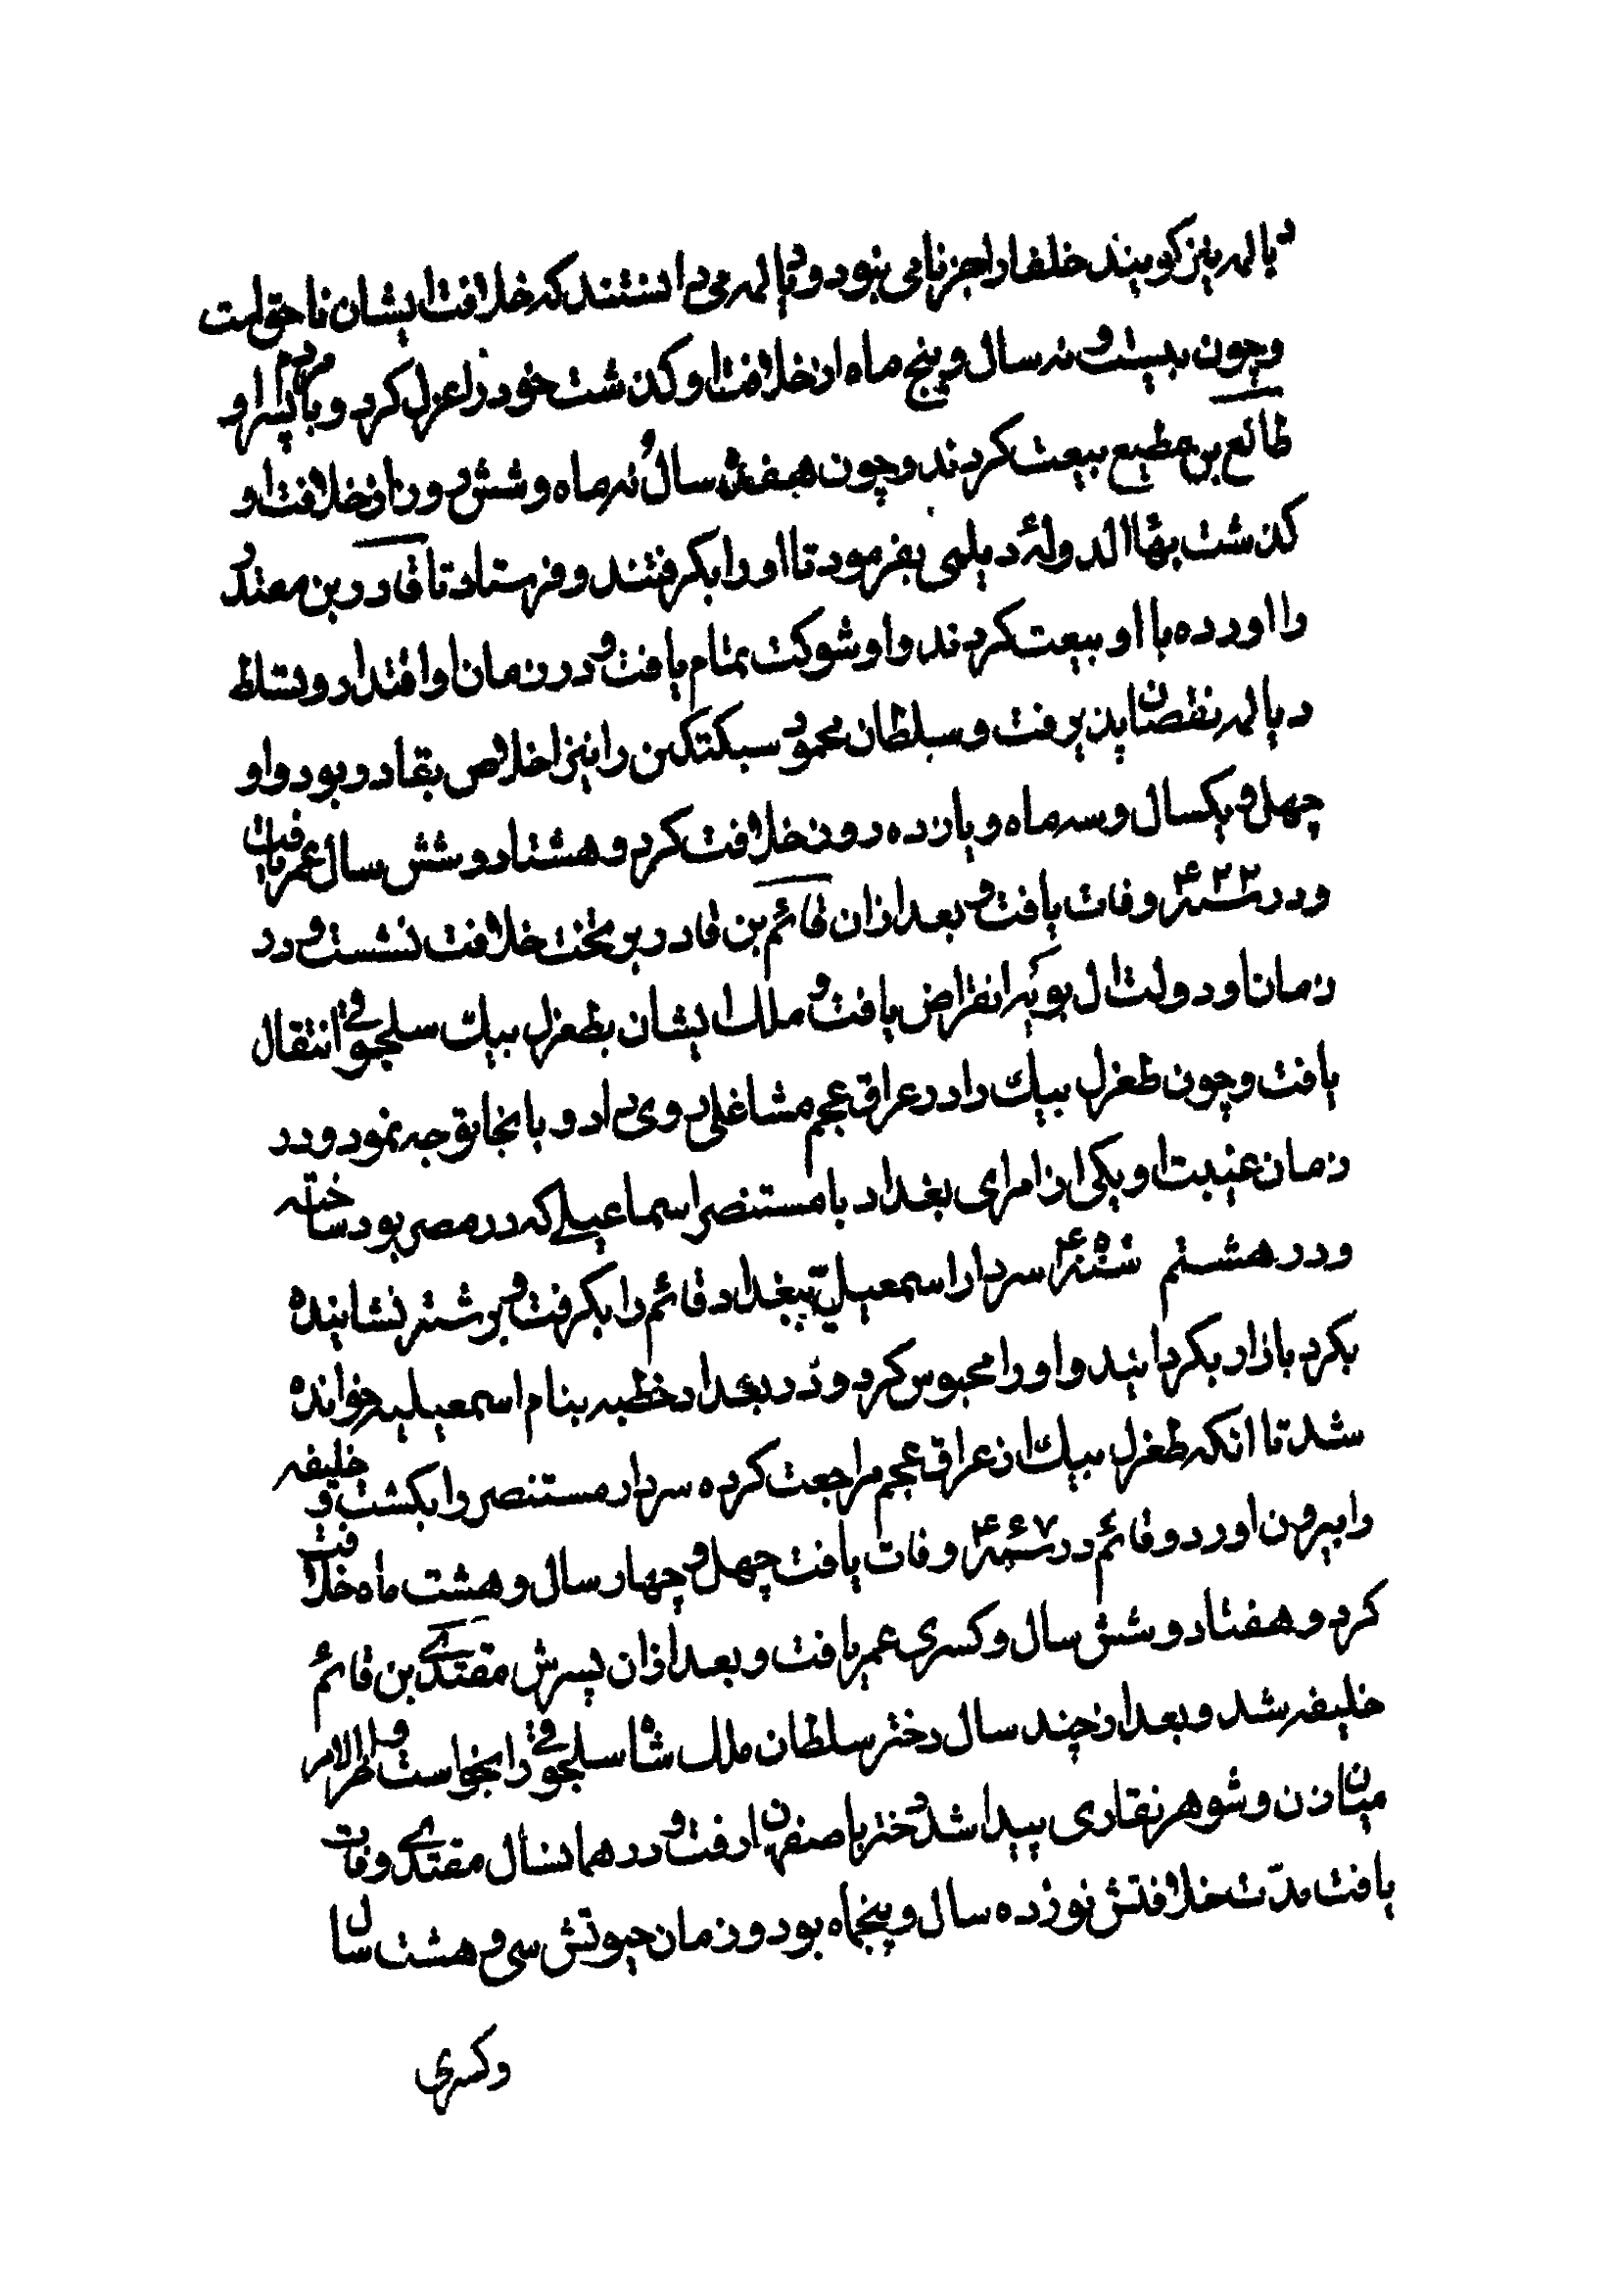 دیالمه نیز کویند خلفا را جز نامی نبود و دیالمه می دانستند که خلافت ایشان ناحق است
و چون بیست و نه سال و پنج ماه از خلافت او کذشت خود را عزل کرد و مردم با پسر او
طائع بن مطیع بیعت کردند و چون هفده سال و نه ماه و شش روز از خلافت او
کذشت بهاالدولهٔ دیلمی بفرمود تا او را بکرفتند و فرستاد تا قادر بن مقتدر
را اورده با او بیعت کردند و او شوکت تمام یافت و در زمان او اقتدار و تسلط
دیالمه نقصان پذیرفت و سلطان محمود سبکتکین را نیز اخلاص بقادر بود و او
چهل و یکسال و سه ماه و یازده روز خلافت کرد و هشتاد و شش سال عمر یافت
و در سنهٔ ۴۲۲ وفات یافت و بعد ازان قائم بن قادر بر تخت خلافت نشست و در
زمان او دولت ال بویه انقراض یافت و ملک ایشان بطغرل بیک سلجوقی انتقال
یافت و چون طغرل بیک را در عراق عجم مشاغلی روی داد و بانجا توجه نمود و در
زمان غیبت او یکی از امرای بغداد با مستنصر اسماعیلی که در مصر بود ساخته
و در هشتم سنهٔ ۴۵۰ سردار اسمعیلی ببغداد قائم را بکرفت و بر شتر نشاینده
بکرد بازار بکردانید و او را محبوس کرد و در بغداد خطبه بنام اسمعیلیه خوانده
شد تا انکه طغرل بیک از عراق عجم مراجعت کرده سردار مستنصر را بکشت و خلیفه
را بیرون اورد و قائم در سنهٔ ۴۶۷ وفات یافت چهل و چهار سال و هشت ماه خلافت
کرد و هفتاد و شش سال و کسری عمر یافت و بعد ازان پسرش مقتدی بن قائم
خلیفه شد و بعد از چند سال دختر سلطان ملک شاه سلجوقی را بخواست و اخر الامر
میان زن و شوهر نقاری پیدا شد دختر باصفهان رفت و در همانسال مقتدی وفات
یافت مدّت خلافتش نوزده سال و پنجماه بود و زمان حیوتش سی و هشت سال
و کسری